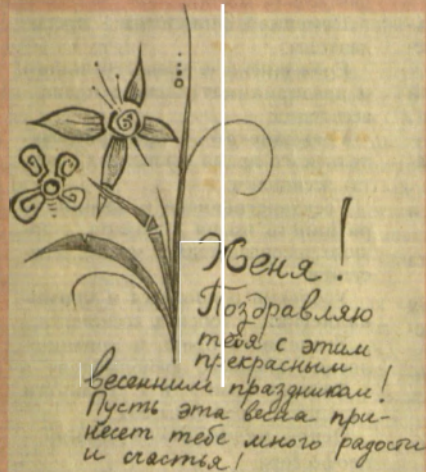 Женя!
Поздравляю
тебя с этим
прекрасным
весенним праздником!
Пусть эта весна при-
несет тебе много радости
и счастья!